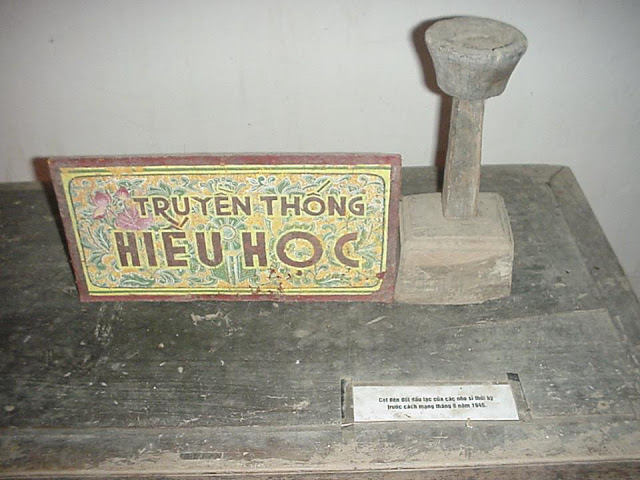 TRUYỀN THỐNG
HIẾU HỌC
Cột đèn đốt dầu lạc của các nho sĩ thời kỳ
trước cách mạng tháng 8 năm 1945.